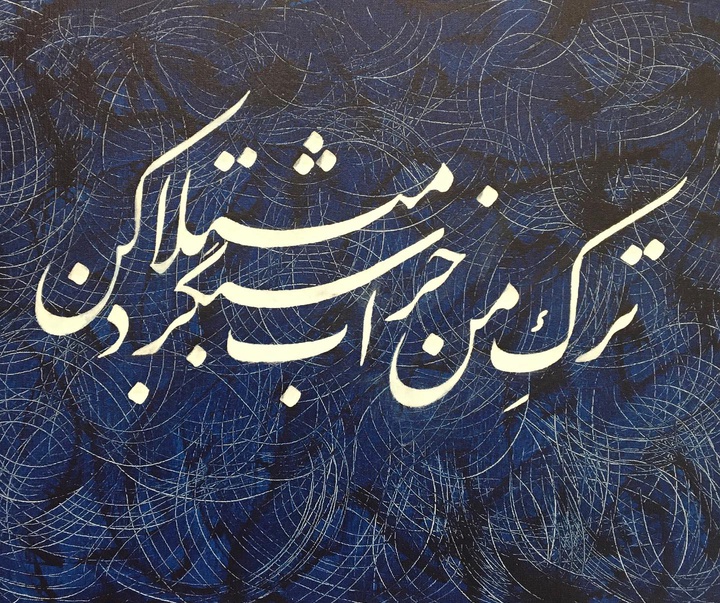 ترکِ من خراب شبگرد مبتلا کن